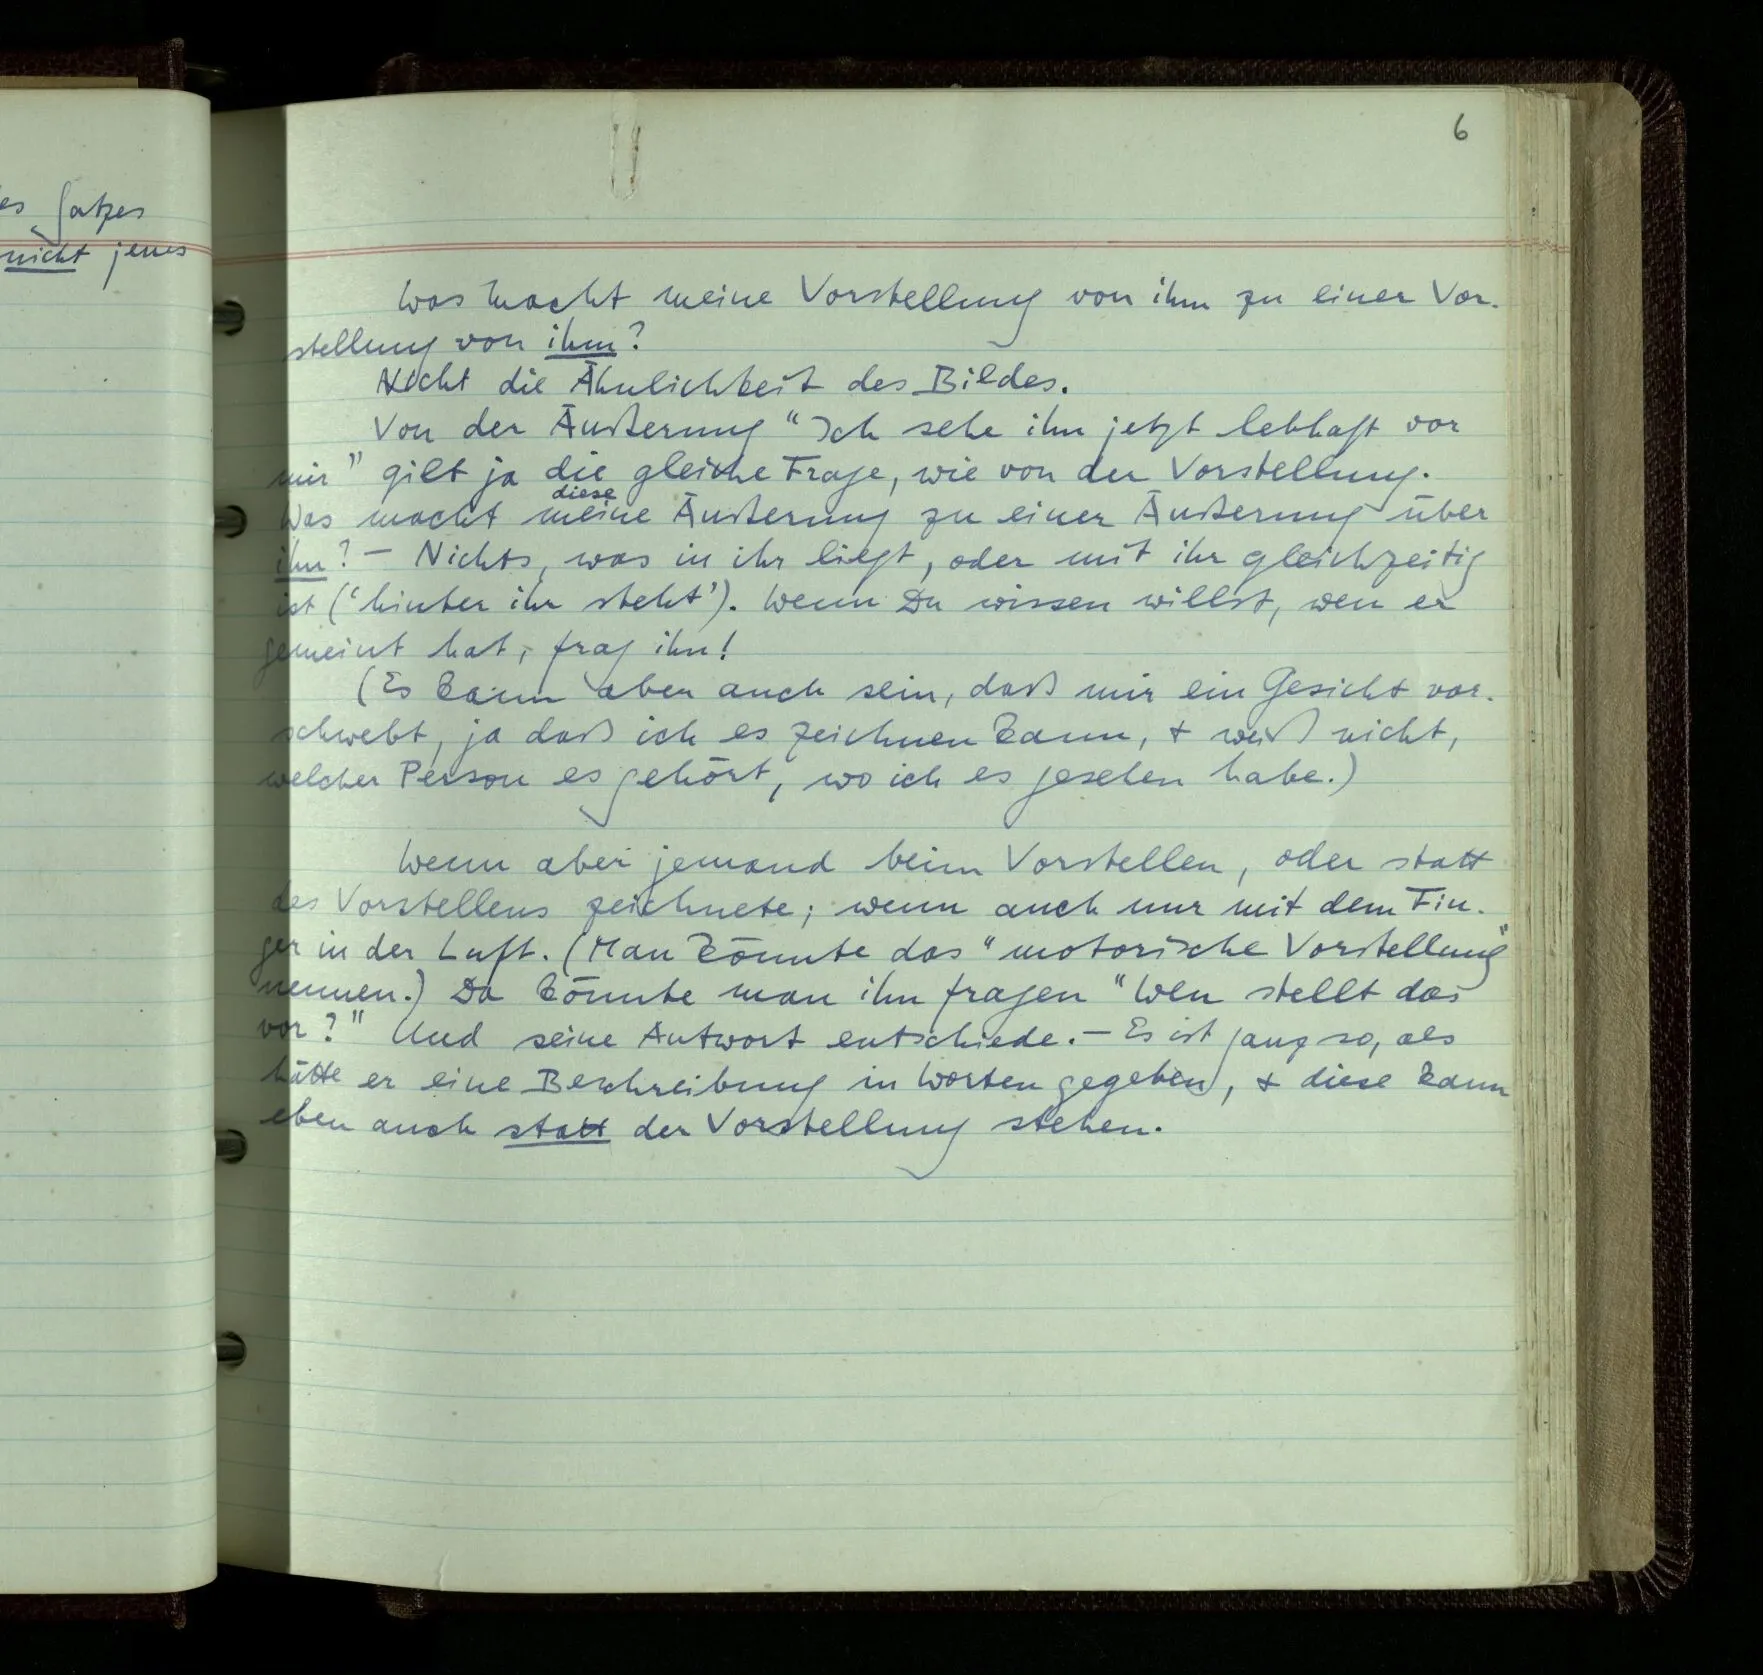 es Satzes
nicht jenes
6
Was macht meine Vorstellung von ihm zu einer Vor-
stellung von ihm?
Nicht die Ähnlichkeit des Bildes.
Von der Äußerung "Ich sehe ihn jetzt lebhaft vor
mir" gilt ja die gleiche Frage, wie von der Vorstellung.
diese
Was macht meine Äußerung zu einer Äußerung über
ihn? – Nichts, was in ihr liegt, oder mit ihr gleichzeitig
ist ('hinter ihr steht'). Wenn Du wissen willst, wen er
gemeint hat, frag ihn!
(Es kann aber auch sein, daß mir ein Gesicht vor-
schwebt, ja daß ich es zeichnen kann, & weiß nicht,
welcher Person es gehört, wo ich es gesehen habe.)
Wenn aber jemand beim Vorstellen, oder statt
des Vorstellens zeichnete; wenn auch nur mit dem Fin-
ger in der Luft. (Man könnte das "motorische Vorstellung"
nennen.) Da könnte man ihn fragen "Wen stellt das
vor?" Und seine Antwort entschiede. – Es ist ganz so, als
hätte er eine Beschreibung in Worten gegeben, & diese kann
eben auch statt der Vorstellung stehen.